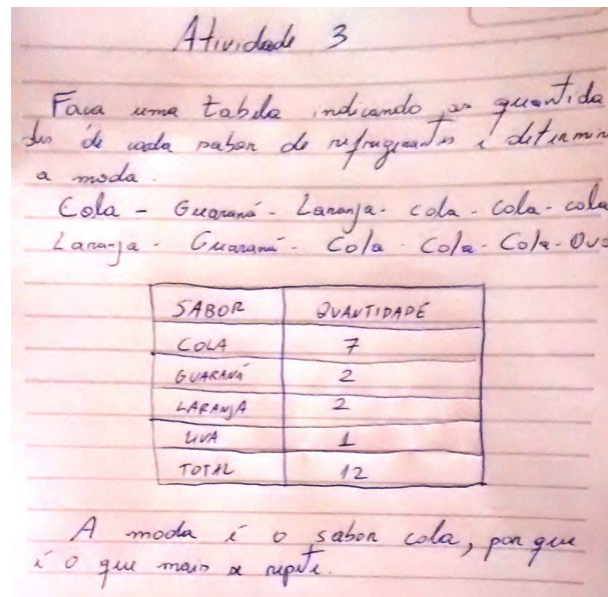 Atividade 3
Faça uma tabela indicando as quantida
des de cada sabor de refrigerantes e determin
a moda.
Cola - Guaraná - Laranja - cola - cola - cola
Laranja - Guaraná - Cola - Cola - Cola - Uva
SABOR QUANTIDADE
COLA 7
GUARANÁ 2
LARANJA 2
UVA 1
TOTAL 12
A moda é o sabor cola, por que
é o que mais se repete.